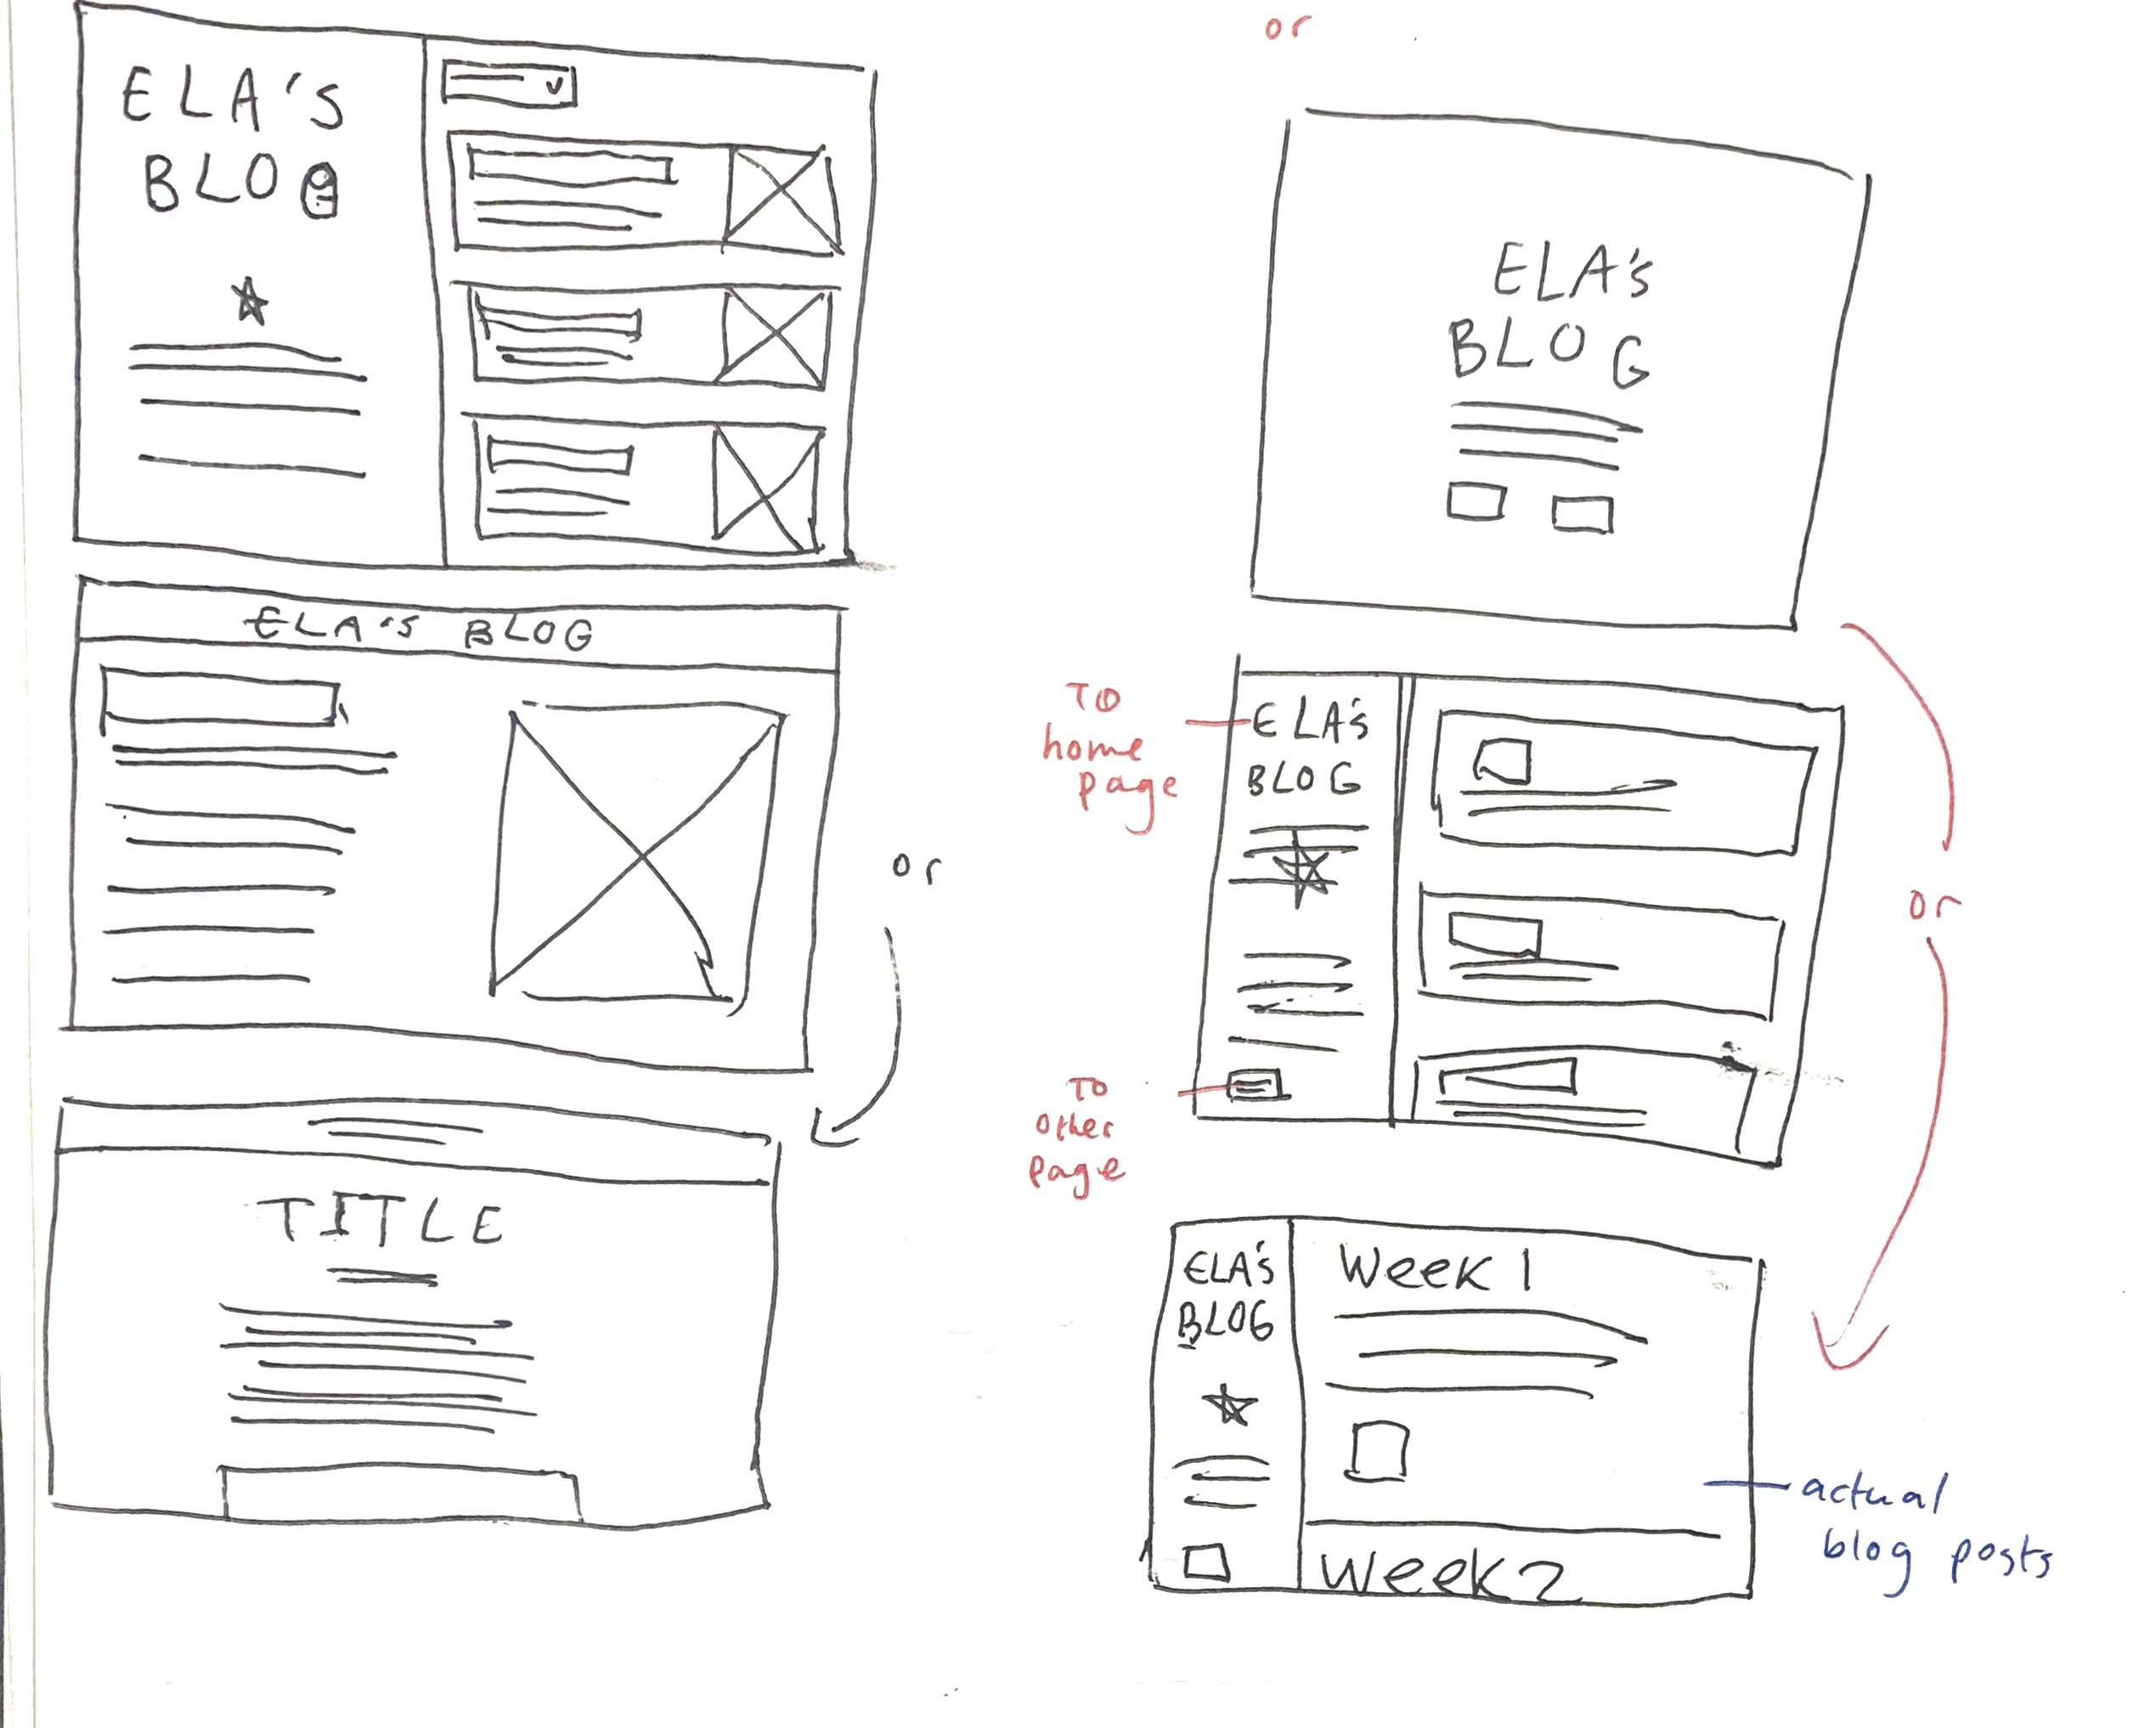 ELA'S
BLOG
ELA'S BLOG
or
TITLE
or
ELA's
BLOG
TO
home
page
ELA's
BLOG
TO
other
page
or
ELA's
BLOG
Week 1
Week 2
actual
blog posts